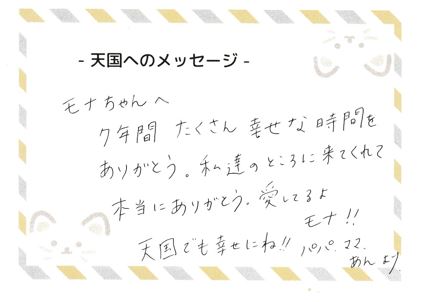 - 天国へのメッセージ -
モナちゃんへ
7年間 たくさん 幸せな時間を
ありがとう。私達のところに来てくれて
本当にありがとう。愛してるよ
モナ!!
天国でも幸せにね!! パパ、ママ、
あんより